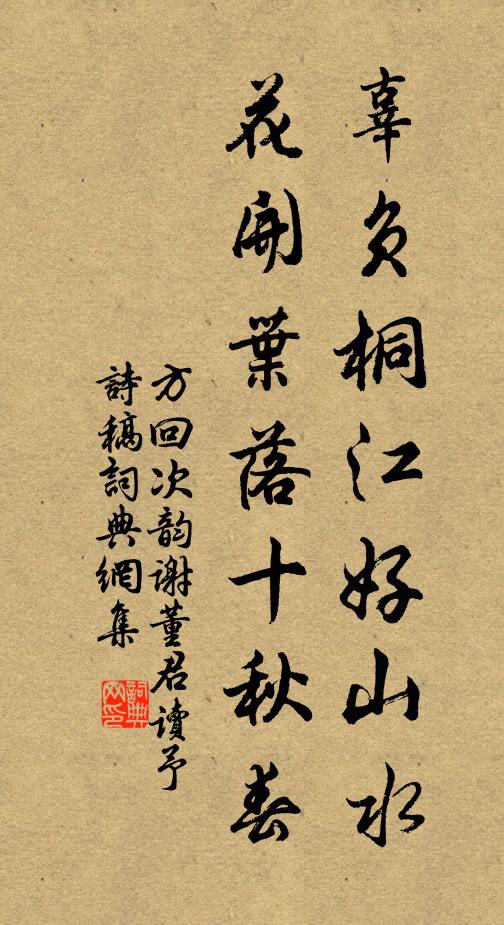 辜負桐江好山水
花開葉落十秋春
方回次韵謝董君讀予
詩稿詞典網集
詞典网印